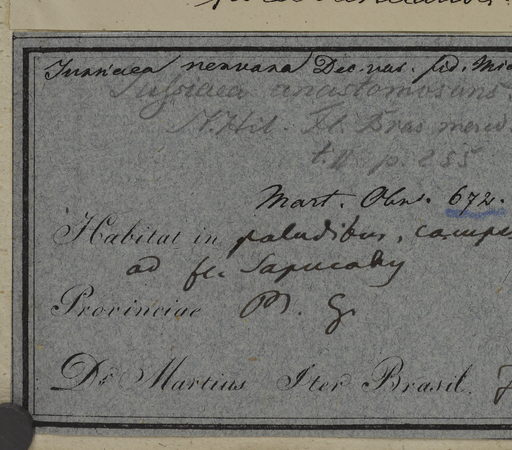 Jussiaea nervosa Dec. var. fid. Mic
Jussiaea anastomosans
St. Hil. Fl. Bras. merid.
t. II p. 255
Mart. Obs. 672.
Habitat in paludibus, campes
ad fl. Sapucahy
Provinciae M. G.
Dr. Martius Iter Brasil.